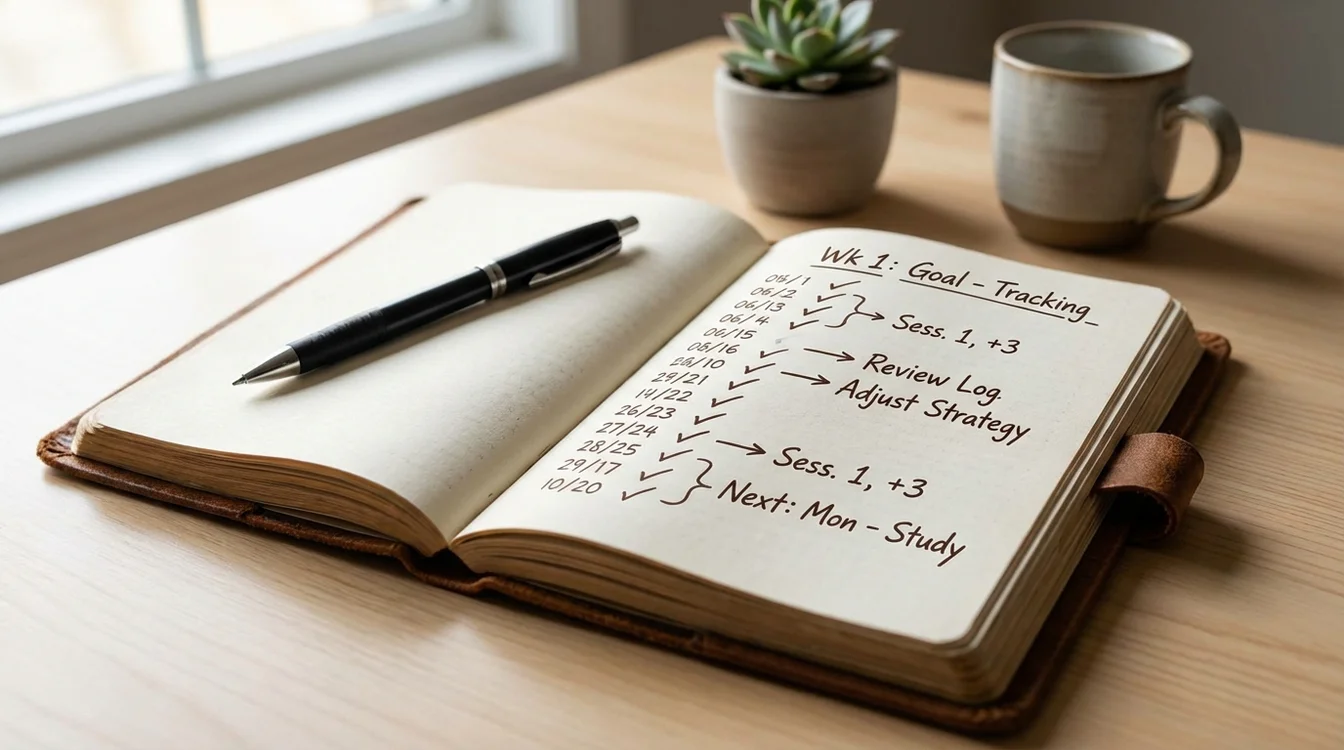 Wk 1: Goal - Tracking
06/1 ✓
06/2 ✓
06/13 ✓ → Sess. 1, +3
06/4 ✓
06/15
06/16 ✓ → Review Log.
28/10 ✓ → Adjust Strategy
29/21 ✓
14/22 ✓
26/23 ✓
27/24 ✓ → Sess. 1, +3
28/25 ✓
29/17 ✓ Next: Mon - Study
10/20 ✓